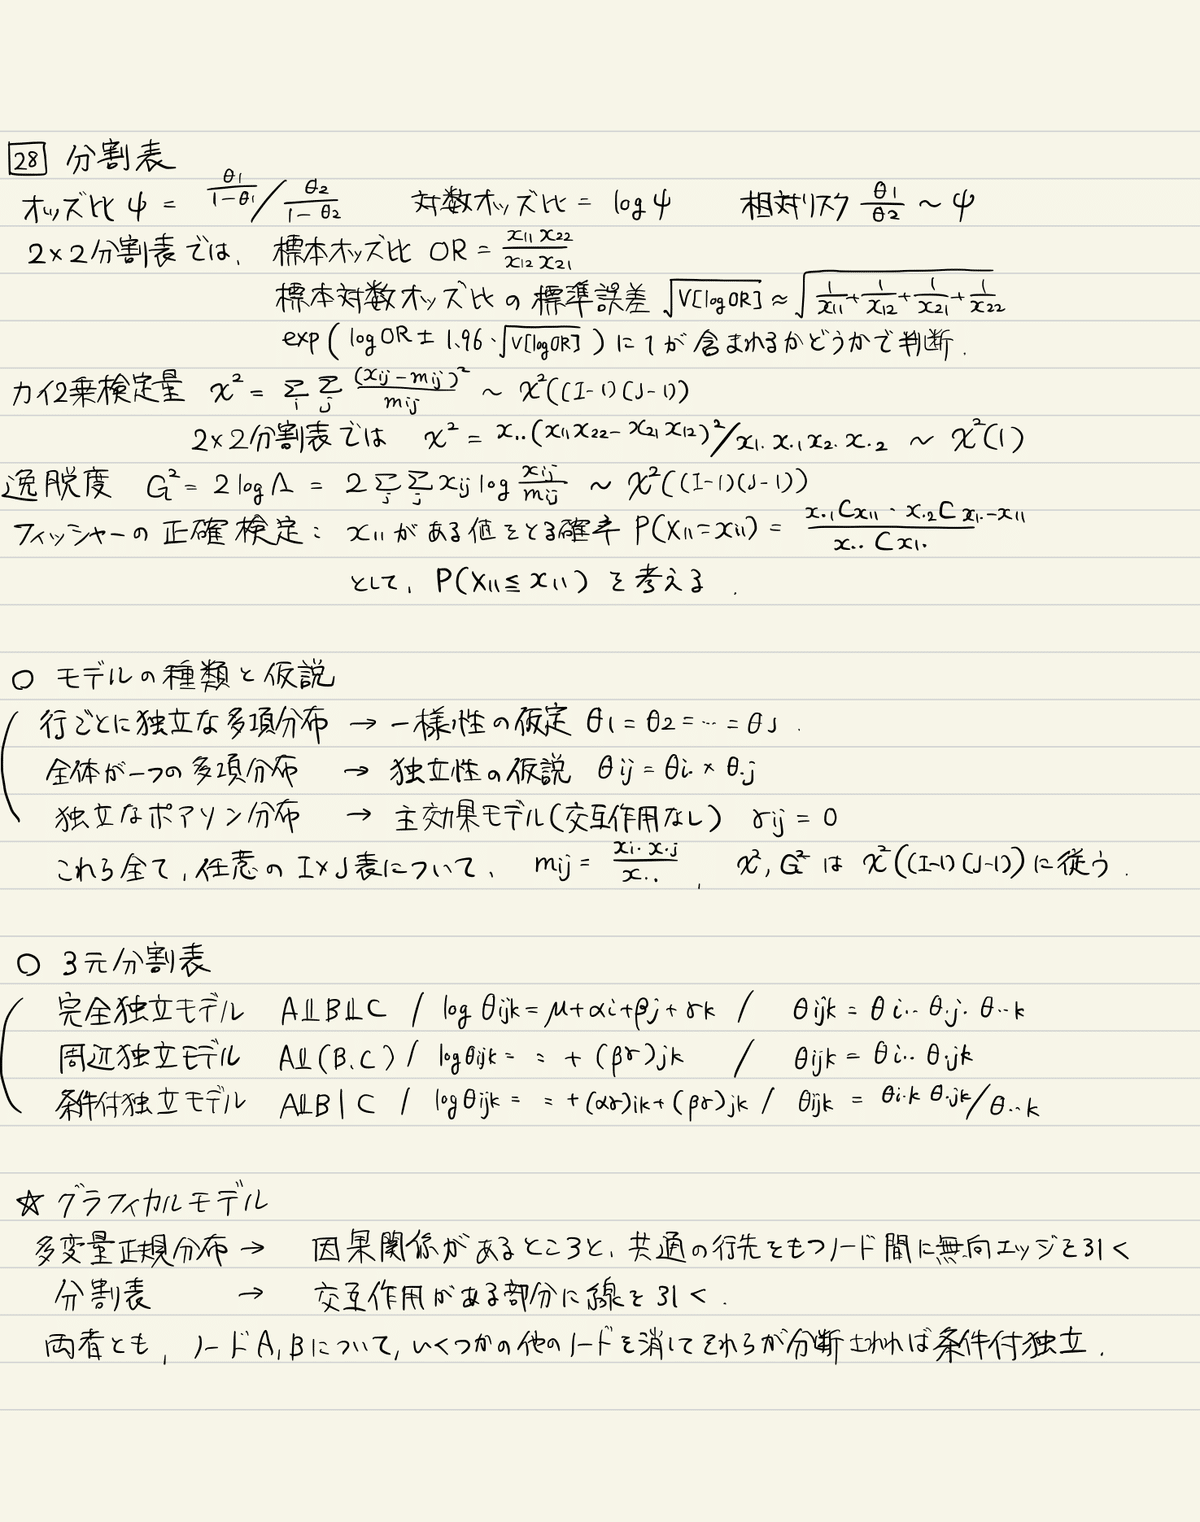 28 分割表
オッズ比 ψ = θ1/(1-θ1) / θ2/(1-θ2) 対数オッズ比 = log ψ 相対リスク θ1/θ2 ~ ψ
2×2分割表では、標本オッズ比 OR = x11 x22 / x12 x21
標本対数オッズ比の標準誤差 √V[log OR] ≈ √(1/x11 + 1/x12 + 1/x21 + 1/x22)
exp ( log OR ± 1.96・√V[log OR] ) に 1 が含まれるかどうかで判断.
カイ2乗検定量 χ² = Σi Σj (xij - mij)² / mij ~ χ²((I-1)(J-1))
2×2分割表では χ² = x.. (x11 x22 - x21 x12)² / x1. x.1 x2. x.2 ~ χ²(1)
逸脱度 G² = 2 log Λ = 2 Σi Σj xij log xij/mij ~ χ²((I-1)(J-1))
フィッシャーの正確検定: x11がある値をとる確率 P(X11 = x11) = x.1 C x11 ・ x.2 C x1.-x11 / x.. C x1.
として、P(X11 ≤ x11) を考える.
○ モデルの種類と仮説
行ごとに独立な多項分布 → 一様性の仮定 θ1 = θ2 = … = θJ.
全体が一つの多項分布 → 独立性の仮説 θij = θi. × θ.j
独立なポアソン分布 → 主効果モデル(交互作用なし) γij = 0
これら全て、任意の I×J表について、mij = xi. x.j / x.. , χ², G² は χ²((I-1)(J-1)) に従う.
○ 3元分割表
完全独立モデル A⫫B⫫C / log θijk = μ + αi + βj + γk / θijk = θi.. θ.j. θ..k
周辺独立モデル A⫫(B.C) / log θijk = 〃 + (βγ)jk / θijk = θi.. θ.jk
条件付独立モデル A⫫B|C / log θijk = 〃 + (αγ)ik + (βγ)jk / θijk = θi.k θ.jk / θ..k
☆ グラフィカルモデル
多変量正規分布 → 因果関係があるところと、共通の行先をもつノード間に無向エッジを引く
分割表 → 交互作用がある部分に線を引く.
両者とも、ノードA,Bについて、いくつかの他のノードを消してそれらが分断されれば条件付独立.